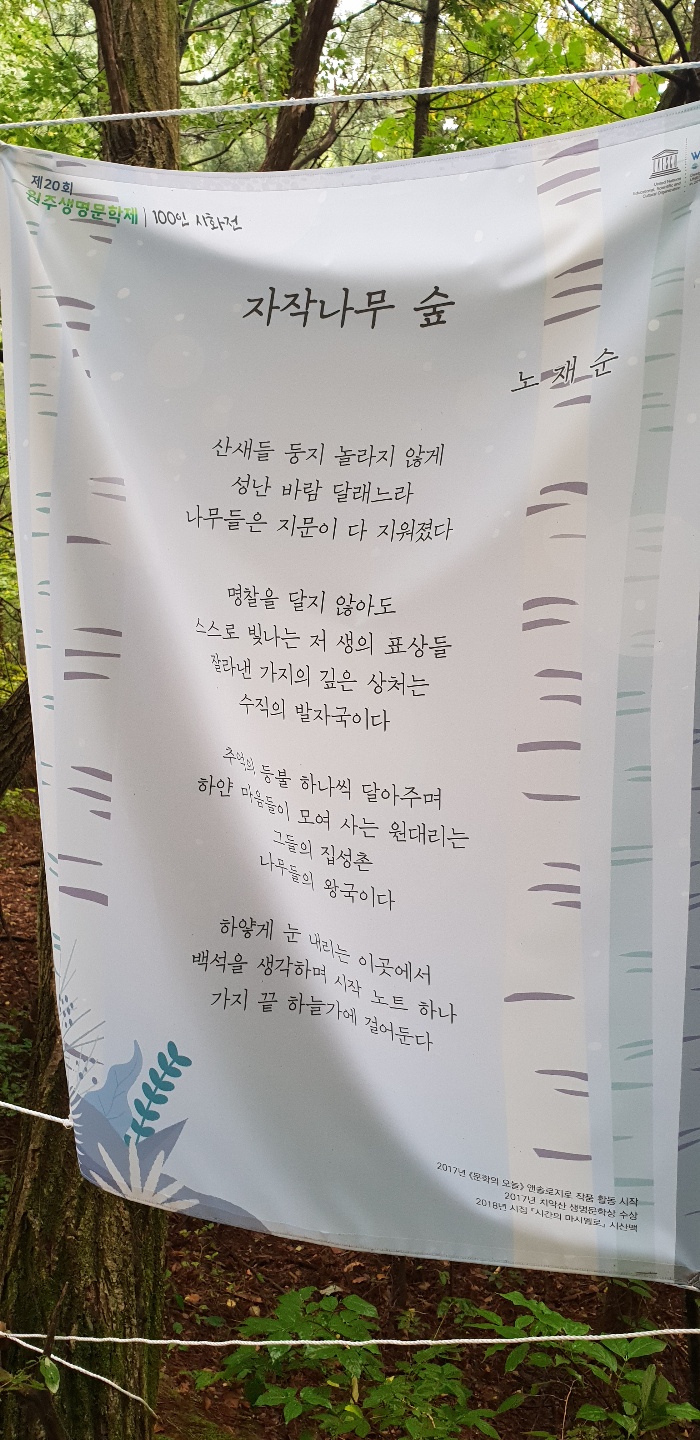 제20회
원주생명문학제 | 100인 시화전
United Nations
Educational, Scientific and
Cultural Organization
자작나무 숲
노재순
산새들 둥지 놀라지 않게
성난 바람 달래느라
나무들은 지문이 다 지워졌다
명찰을 달지 않아도
스스로 빛나는 저 생의 표상들
잘라낸 가지의 깊은 상처는
수직의 발자국이다
추억의 등불 하나씩 달아주며
하얀 마음들이 모여 사는 원대리는
그들의 집성촌
나무들의 왕국이다
하얗게 눈 내리는 이곳에서
백석을 생각하며 시작 노트 하나
가지 끝 하늘가에 걸어둔다
2017년 《문학의 오늘》 앤솔로지로 작품 활동 시작
2017년 치악산 생명문학상 수상
2018년 시집 「시간의 마시멜로」 시산맥